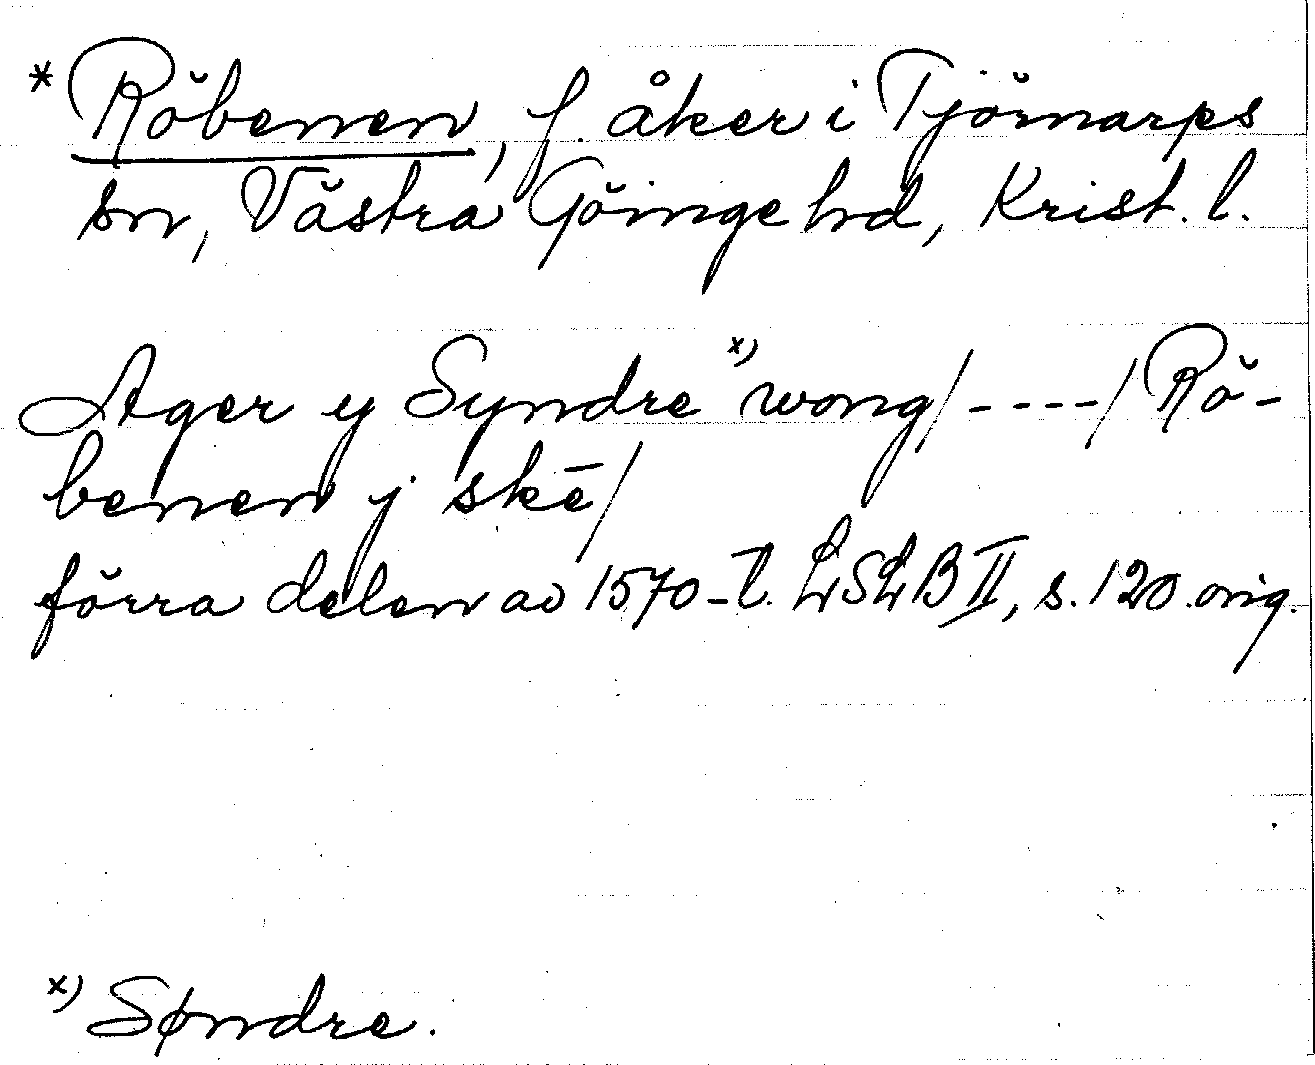 * Röbenen, f. åker i Tjörnarps
sn, Västra Göinge hd, Krist. l.
Ager y Syndre x) wong/----/Rö-
benen j skē/
förra delen av 1570-t. LSLB II, s. 120 orig.
x) Søndre.